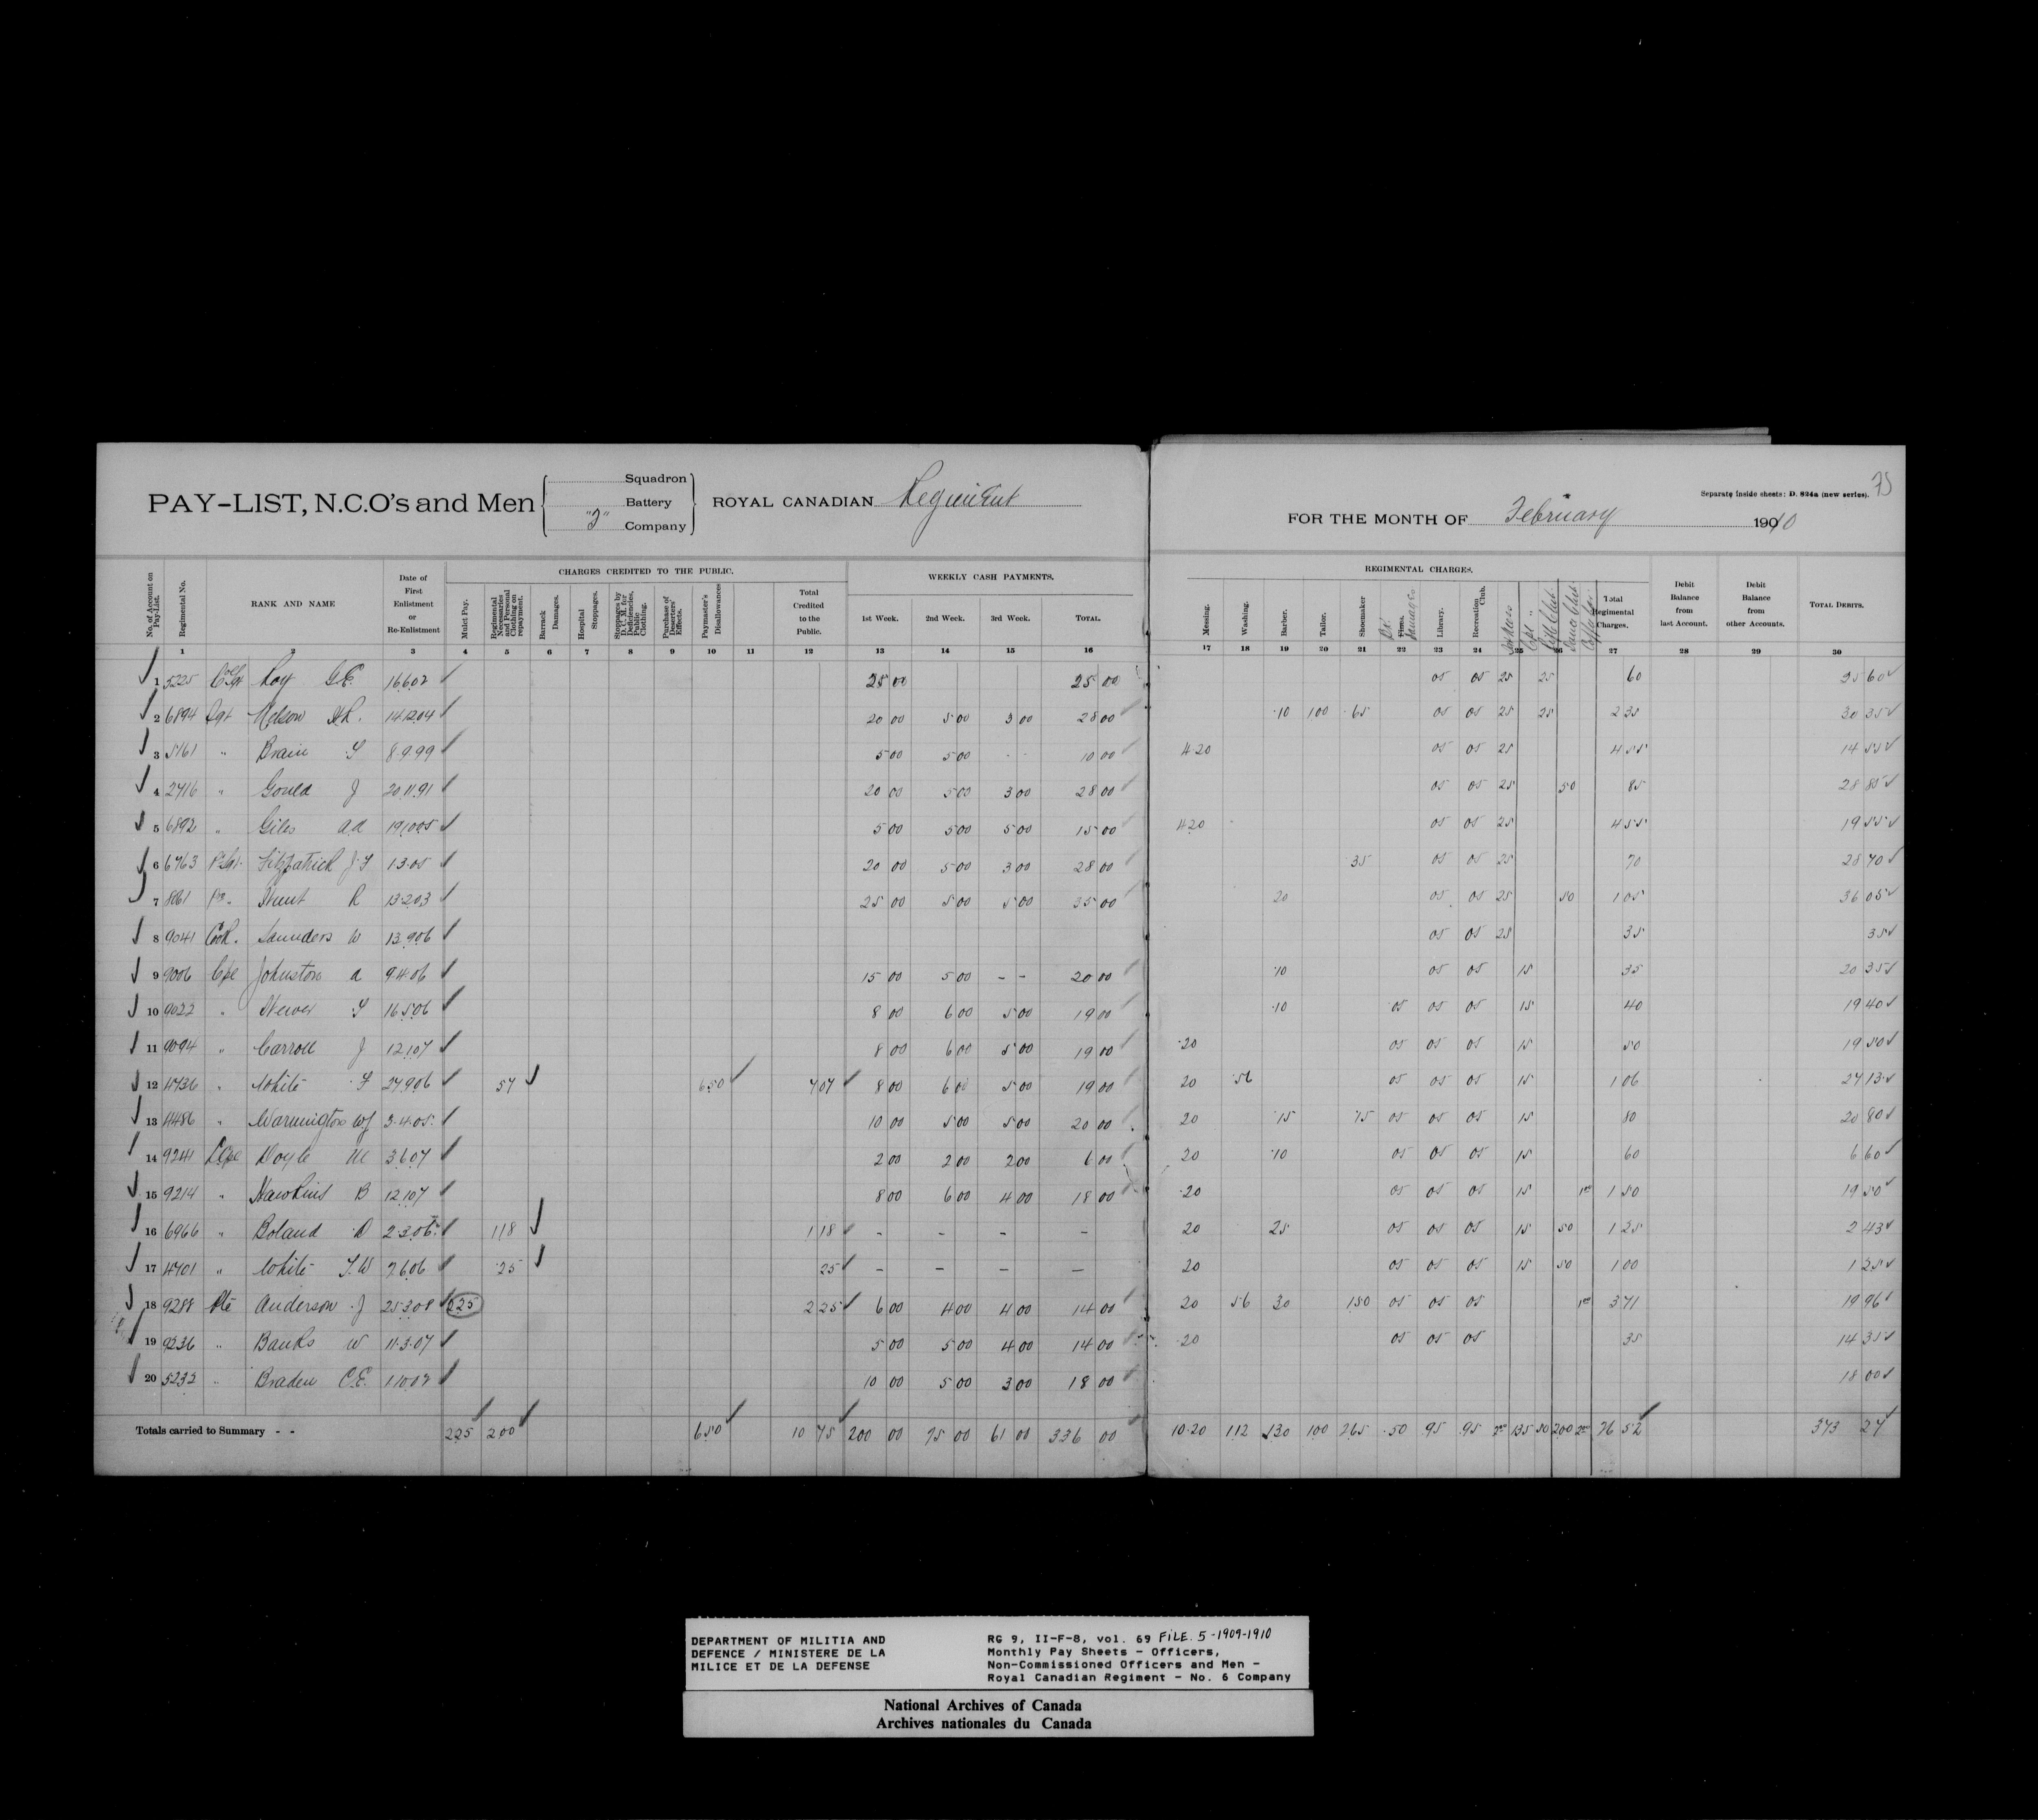 PAY-LIST, N.C.O's and Men
Squadron
Battery
"2" Company
ROYAL CANADIAN Regiment
Separate inside sheets: D. 824a (new series). 75
FOR THE MONTH OF February 1910
CHARGES CREDITED TO THE PUBLIC. WEEKLY CASH PAYMENTS. REGIMENTAL CHARGES.
No. of Account on Pay-List. Regimental No. RANK AND NAME Date of First Enlistment or Re-Enlistment Mulct Pay. Regimental Necessaries and Personal Clothing on repayment. Barrack Damages. Hospital Stoppages. Stoppages by D. C. M. for Deficiencies, Public Clothing. Purchase of Deserters' Effects. Paymaster's Disallowances Total Credited to the Public. 1st Week. 2nd Week. 3rd Week. TOTAL. Messing. Washing. Barber. Tailor. Shoemaker Fines. Bk. Damages Library. Recreation Club. Total Regimental Charges. Debit Balance from last Account. Debit Balance from other Accounts. TOTAL DEBITS.
1 2 3 4 5 6 7 8 9 10 11 12 13 14 15 16 17 18 19 20 21 22 23 24 25 26 27 28 29 30
1 5225 Roy G.E. 16.6.02 25 00 25 00 05 05 25 25 60 25 60
2 6894 Sgt Nelson 14.12.04 20 00 5 00 3 00 28 00 10 1 00 65 05 05 25 25 2 35 30 35
3 5161 " Brain 8.9.99 5 00 5 00 - - 10 00 4 20 05 05 25 4 55 14 55
4 2716 " Gould J 20.11.91 20 00 5 00 3 00 28 00 05 05 25 50 85 28 85
5 6892 " Giles A.A 19.10.05 5 00 5 00 5 00 15 00 4 20 05 05 25 4 55 19 55
6 6763 Fitzpatrick 1.3.05 20 00 5 00 3 00 28 00 35 05 05 25 70 28 70
7 8061 Hunt R 13.2.03 25 00 5 00 5 00 35 00 20 05 05 25 50 1 05 36 05
8 9041 Saunders W 13.9.06 05 05 25 35 35
9 9006 Cpl Johnston A 9.4.06 15 00 5 00 - - 20 00 10 05 05 15 35 20 35
10 9022 " 16.5.06 8 00 6 00 5 00 19 00 10 05 05 05 15 40 19 40
11 9094 " Carroll J 12.1.07 8 00 6 00 5 00 19 00 20 05 05 05 15 50 19 50
12 4736 " White 27.9.06 57 6 50 7 07 8 00 6 00 5 00 19 00 20 56 05 05 05 15 1 06 27 13
13 4486 " Warmington W J 3.4.05 10 00 5 00 5 00 20 00 20 15 15 05 05 05 15 80 20 80
14 9241 LCpl Doyle M 3.6.07 2 00 2 00 2 00 6 00 20 10 05 05 05 15 60 6 60
15 9214 " Hawkins B 12.1.07 8 00 6 00 4 00 18 00 20 05 05 05 15 1 00 1 50 19 50
16 6966 " Boland D 2.3.06 1 18 1 18 - - - - 20 25 05 05 05 15 50 1 25 2 43
17 4701 " White 7.6.06 25 25 - - - - 20 05 05 05 15 50 1 00 1 25
18 9288 Pte Anderson J 25.3.08 2 25 2 25 6 00 4 00 4 00 14 00 20 56 30 1 50 05 05 05 1 00 3 71 19 96
19 9236 " Banks W 11.3.07 5 00 5 00 4 00 14 00 20 05 05 05 35 14 35
20 5233 " Braden C.E. 1.10.07 10 00 5 00 3 00 18 00 18 00
Totals carried to Summary - - 2 25 2 00 6 50 10 75 200 00 75 00 61 00 336 00 10 20 1 12 1 30 1 00 2 65 50 95 95 2 00 1 35 50 2 00 2 00 26 52 373 27
DEPARTMENT OF MILITIA AND
DEFENCE / MINISTERE DE LA
MILICE ET DE LA DEFENSE
RG 9, II-F-8, vol. 69 FILE. 5-1909-1910
Monthly Pay Sheets - Officers,
Non-Commissioned Officers and Men -
Royal Canadian Regiment - No. 6 Company
National Archives of Canada
Archives nationales du Canada